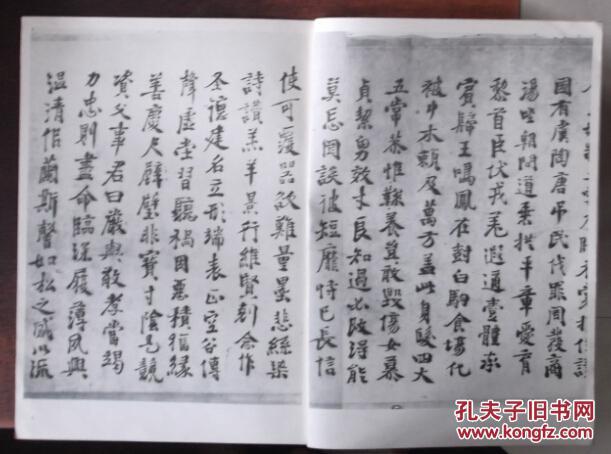 乃服衣裳推位讓
國有虞陶唐吊民伐罪周發商
湯坐朝問道垂拱平章愛育
黎首臣伏戎羌遐邇壹體率
賓歸王鳴鳳在樹白駒食場化
被草木賴及萬方蓋此身髮四大
五常恭惟鞠養豈敢毀傷女慕
貞絜男效才良知過必改得能
莫忘罔談彼短靡恃己長信
使可覆器欲難量墨悲絲染
詩讚羔羊景行維賢剋念作
聖德建名立形端表正空谷傳
聲虛堂習聽禍因惡積福緣
善慶尺璧非寶寸陰是競
資父事君曰嚴與敬孝當竭
力忠則盡命臨深履薄夙興
溫清似蘭斯馨如松之盛川流
孔夫子旧书网
www.kongfz.com